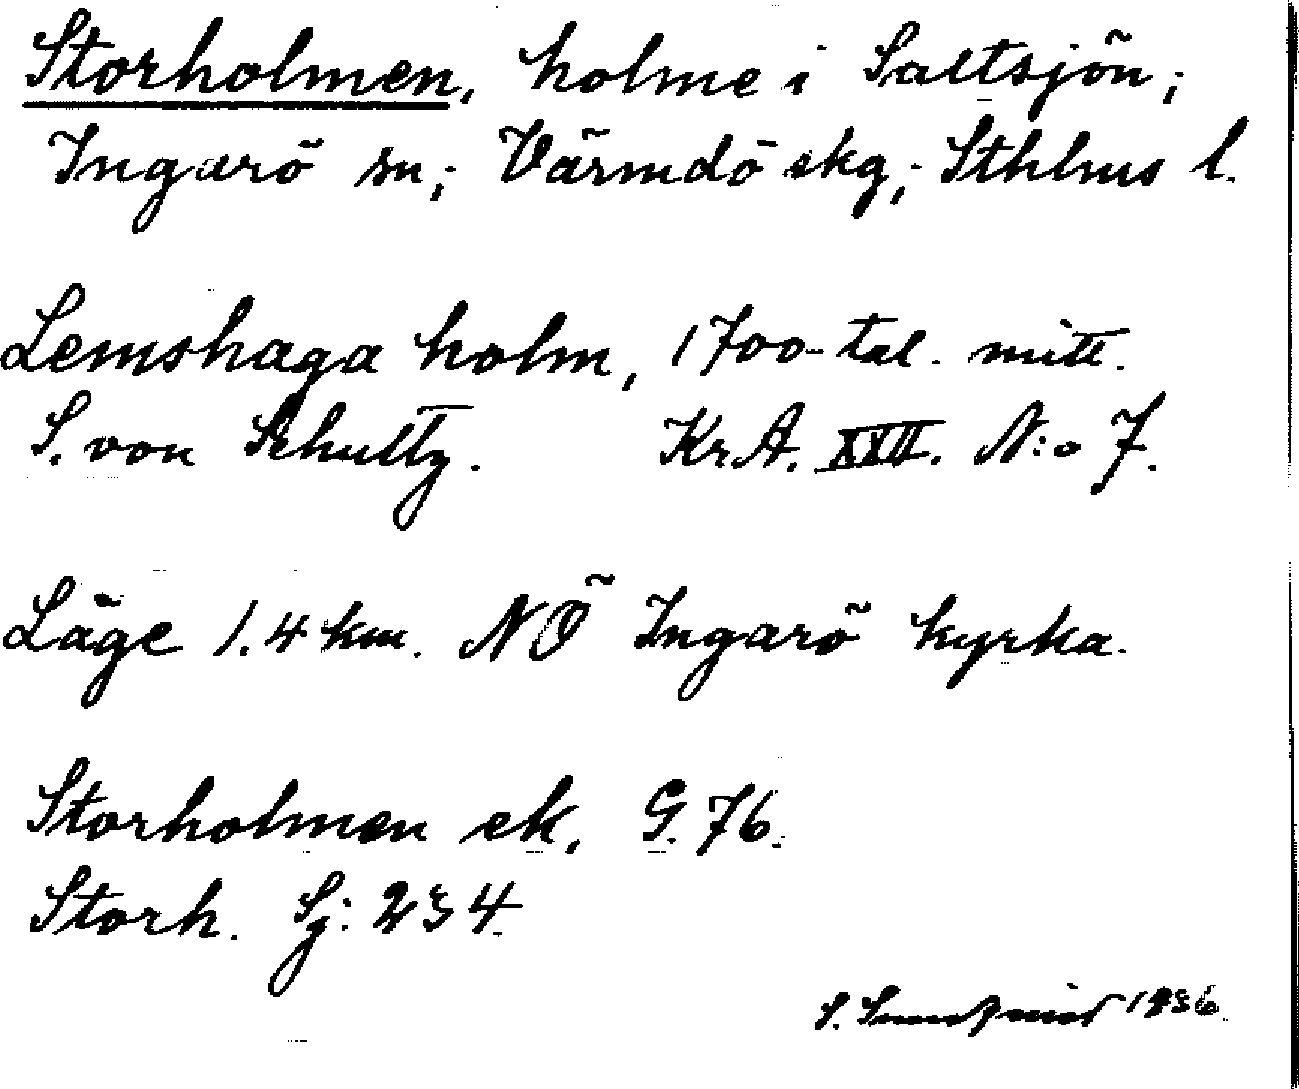 Storholmen, holme i Saltsjön;
Ingarö sn; Värmdö skg; Sthlms l.
Lemshaga holm, 1700-tal. mitt.
S. von Schultz. Kr.A. XXII. N:o 7.
Läge 1.4 km. NÖ Ingarö kyrka.
Storholmen ek. G. 76.
Storh. Sj: 234
S. 1936